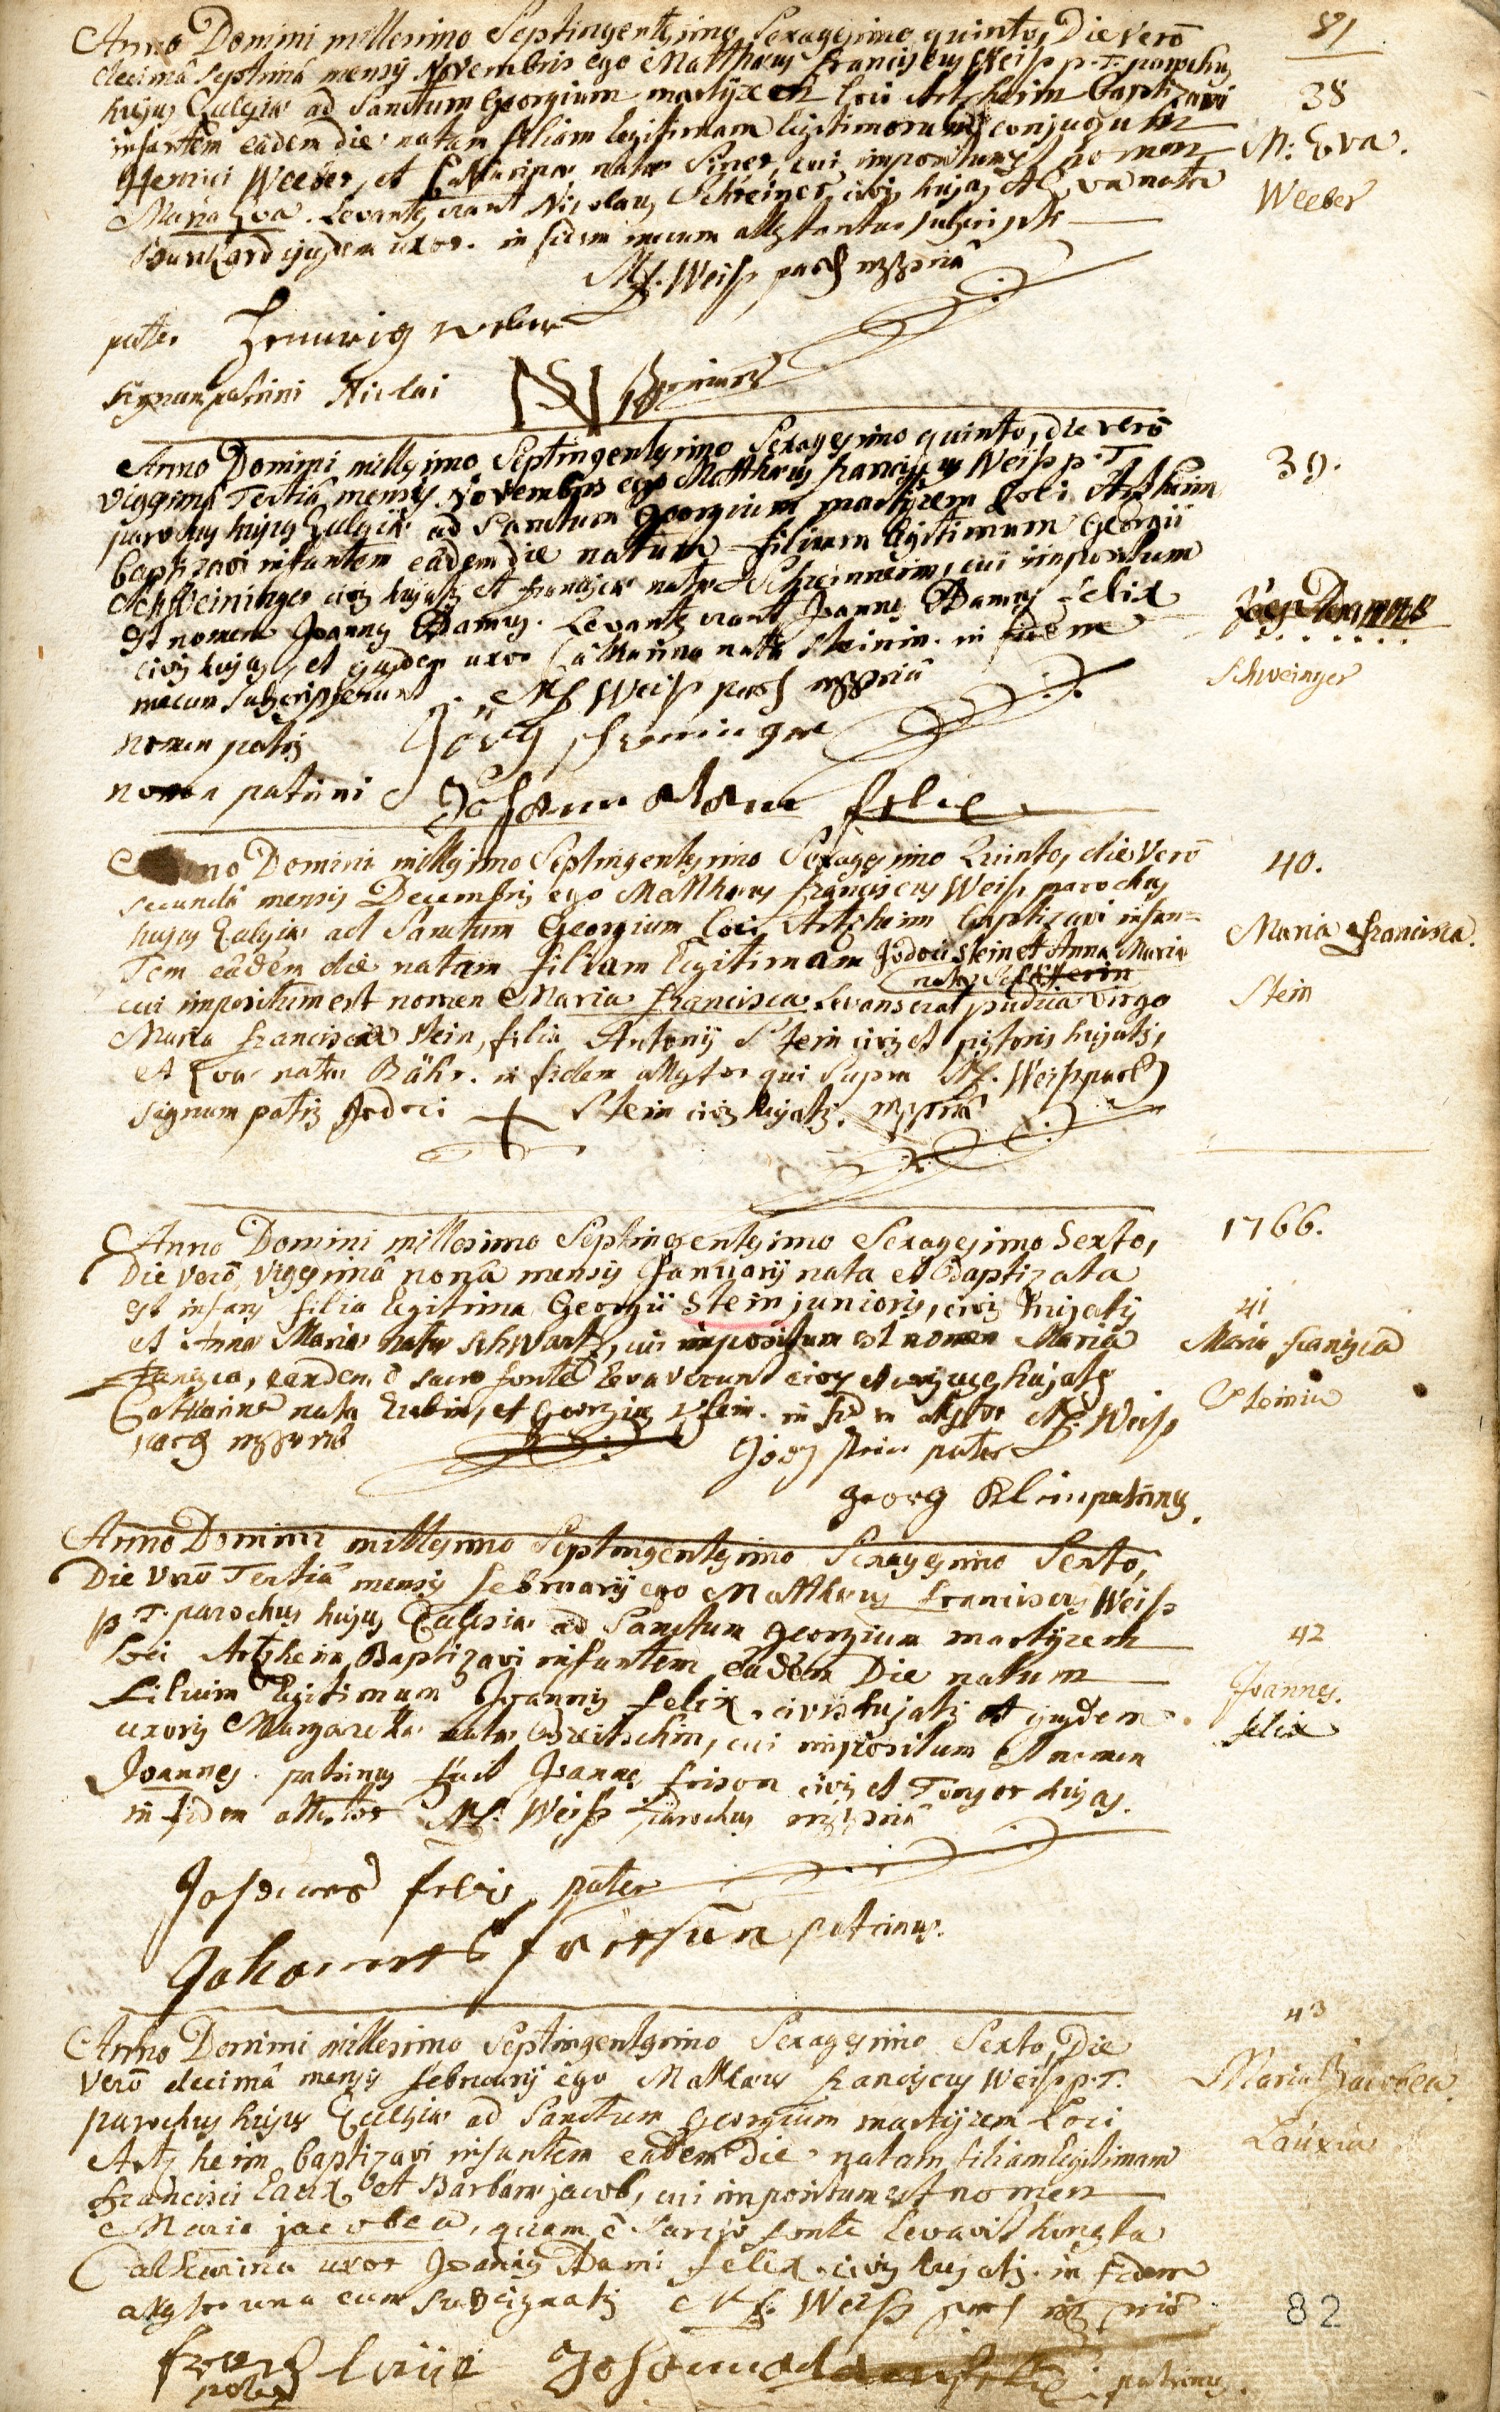 81
Anno Domini millesimo Septingentesimo Sexagesimo quinto, Die verò
decimâ septimâ mensis Novembris ego Matthæus Franciscus Weiss p. T. parochus
hujus Ecclesiæ ad Sanctum Georgium martyrem loci Artzheim baptizavi
38
infantem eâdem die natam filiam legitimam legitimorum conjugum
M: Eva.
Henrici Weeber, et Catharinæ natæ Siner, cui impositum est nomen
Weeber
Maria Eva. Levantes erant Nicolaus Schreiner, civis hujas, et Eva nata
Burckard ejusdem uxor. in fidem mecum
M f. Weiss par
pater Henrig weber
signum patrini Nicolai
Anno Domini millesimo Septingentesimo Sexagesimo quinto, die verò
39.
Vigesimâ Tertiâ mensis Novembris ego Matthæus Franciscus Weiss p. T.
parochus hujus Ecclesiæ ad Sanctum Georgium martyrem loci Artzheim
baptizavi infantem eâdem die natum filium legitimum Georgii
Schweininger civis hujatis et Franciscæ natæ Schreinnerin, cui impositum
est nomen Joannes Adamus. Levantes erant Joannes Adamus Felix
civis hujas, et ejusdem uxor Catharina nata Steinin. in fidem
Schweinger
mecum subscripserunt M f Weiss
nomen patris Jörg
nomen patrini Johann Adam felix
Domini millesimo Septingentesimo Sexagesimo Quinto, die verò
40.
secundâ mensis Decembris ego Matthæus Franciscus Weiss parochus
hujus Ecclesiæ ad Sanctum Georgium loci Artzheim baptizavi infan=
Maria Francisca.
tem eâdem die natam filiam legitimam Jodoci Stein et Anna Maria
natæ
cui impositum est nomen Maria Francisca Levans erat pudica virgo
Stein
Maria Francisca Stein, filia Antonij Stein civis et pistoris hujatis,
et Eva natæ Bähr. in fidem attestor qui supra M f. Weiss
signum patris Jodoci + Stein civis hujatis.
Anno Domini millesimo Septingentesimo Sexagesimo Sexto,
1766.
Die verò vigesimâ nonâ mensis Januarij nata et Baptizata
est infans filia legitima Georgii Stein junioris, civis hujatis
41
et Annæ Mariæ natæ Schwartz, cui impositum est nomen Maria
Maria Francisca
eandem è sacro fonte levaverunt cives et conjuges hujates
Steinin
Catharina nata et Georgius in fidem attestor M f. Weiss
Jörg Stein pater
georg Klein patrinus.
Anno Domini millesimo Septingentesimo Sexagesimo Sexto,
Die verò Tertiâ mensis februarij ego Matthæus Franciscus Weiss
p. T. parochus hujus Ecclesiæ ad Sanctum Georgium martyrem
42
loci Artzheim Baptizavi infantem eâdem Die natum
Joannes.
filium legitimum Joannis Felix, civis hujatis et ejusdem
felix
uxoris Margarethæ natæ cui impositum est nomen
Joannes. patrinus fuit Joannes Frison civis et Tonsor hujas.
in fidem attestor M f. Weiss parochus
Johannes felix pater
Johannes patrinus.
43
Anno Domini millesimo Septingentesimo Sexagesimo Sexto, Die
verò decimâ mensis februarij ego Matthæus Franciscus Weiss p. T.
Maria Jacobea
parochus hujus Ecclesiæ ad Sanctum Georgium martyrem loci
Lauxin
Artzheim baptizavi infantem eâdem Die natam filiam legitimam
Francisci Laux et Barbaræ jacob, cui impositum est nomen
Maria jacobea, quam è sacro fonte levavit honesta
Catharina uxor Joannis Adami Felix civis hujatis. in fidem
attestor una cum subsignatis M f. Weiss
82
frantz
pater Johann adam felix patrinus.